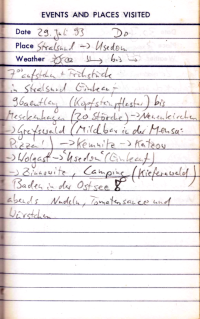 EVENTS AND PLACES VISITED
Date 29. Juli 93 Do
Place Stralsund -> Usedom
Weather bis
7°° aufstehen + Frühstück
in Stralsund Einkauf
(Kopfsteinpflaster) bis
(20 Störche) -> Neuenkirchen
-> Greifswald (Milchbar in der Mensa:
Pizza!) -> Kemnitz -> Katzow
-> Wolgast -> "Usedom" (Einkauf)
-> Zinnowitz, Camping (Kiefernwald)
Baden in der Ostsee
abends Nudeln, Tomatensauce und
Würstchen